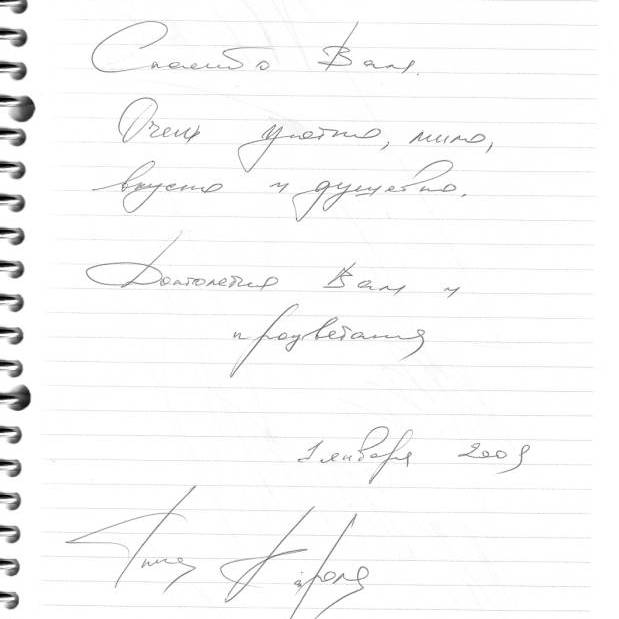 Спасибо Вам.
Очень уютно, мило,
вкусно и душевно.
Долголетия Вам и
процветания
1 января 2009